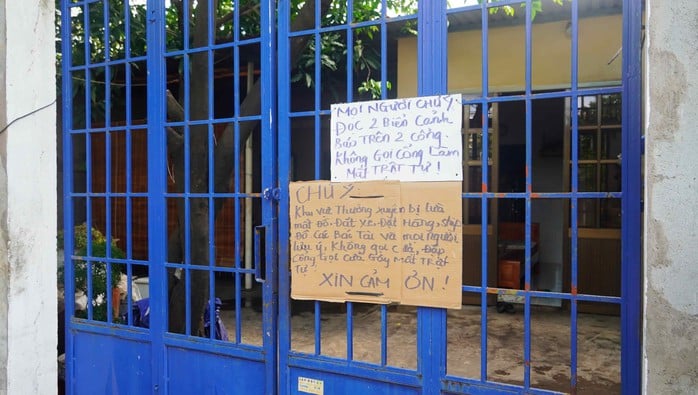 MỌI NGƯỜI CHÚ Ý
ĐỌC 2 Biển Cảnh
Báo TRÊN 2 Cổng
Không Gọi Cổng Làm
Mất TRẬT TỰ !
CHÚ Ý:
Khu vực Thường xuyên bị lừa
mất Đồ, Đặt Xe, Đặt Hàng, ship
Đồ Các Bác Tài và mọi người
lưu ý, Không gọi cửa, Đập
Cổng Gọi Cửa Gây Mất TRẬT
Tự
XIN CẢM ƠN !